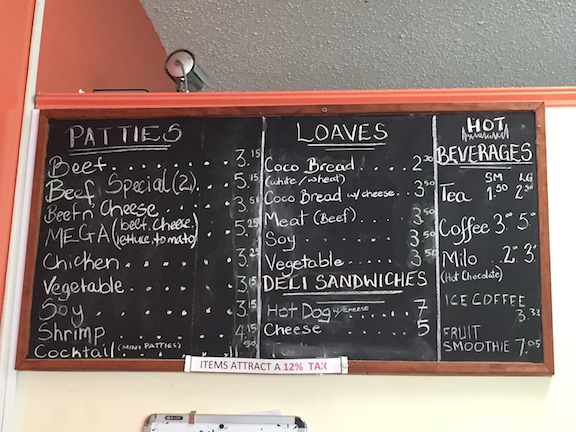 PATTIES
Beef 3.15
Beef Special (2) 5.15
Beef n' Cheese 3.50
MEGA (beef, cheese, lettuce, tomato) 5.25
Chicken 3.25
Vegetable 3.15
Soy 3.15
Shrimp 4.15
Cocktail (MINI PATTIES) .50
LOAVES
Coco Bread 2.30
(white/wheat)
Coco Bread w/cheese 3.50
Meat (Beef) 3.50
Soy 3.50
Vegetable 3.50
DELI SANDWICHES
Hot Dog w/cheese 7
Cheese 5
HOT
BEVERAGES
SM LG
Tea 1.50 2.50
Coffee 3.00 5.00
Milo 2. 3.
(Hot Chocolate)
ICE COFFEE
3.33
FRUIT
SMOOTHIE 7.05
ITEMS ATTRACT A 12% TAX